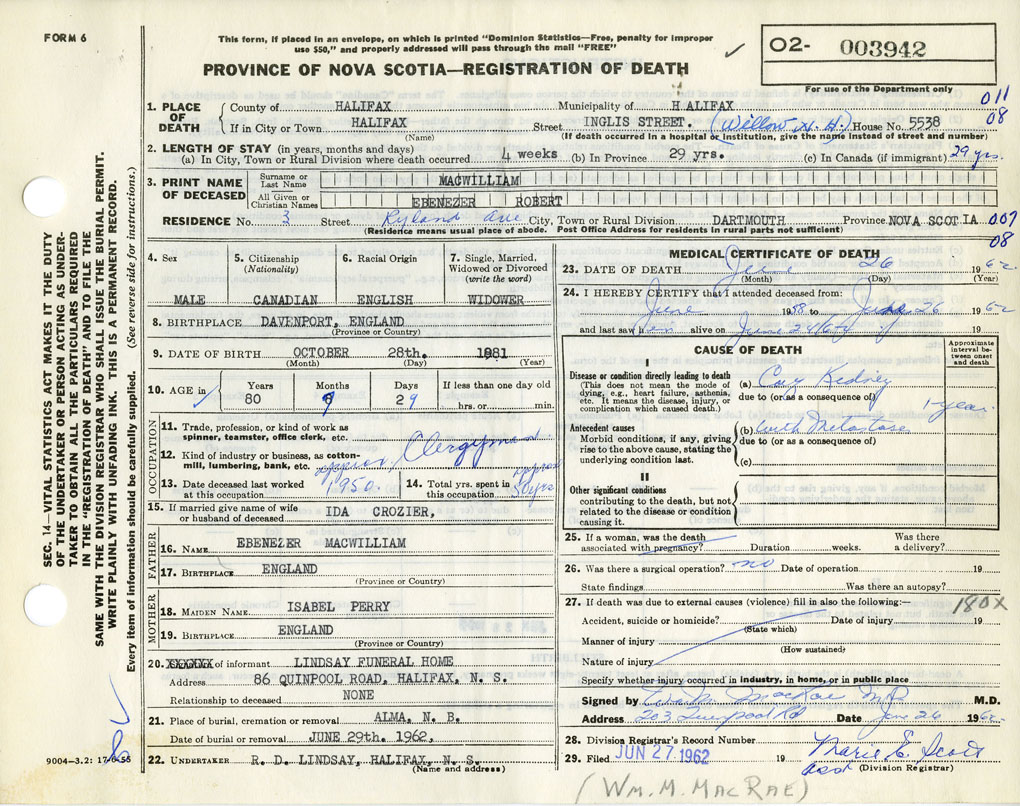 FORM 6
This form, if placed in an envelope, on which is printed "Dominion Statistics—Free, penalty for improper
use $50," and properly addressed will pass through the mail "FREE"
PROVINCE OF NOVA SCOTIA—REGISTRATION OF DEATH
O2- 003942
For use of the Department only
011
08
1. PLACE OF DEATH
County of HALIFAX Municipality of HALIFAX
If in City or Town HALIFAX Street INGLIS STREET. (Willow H. H.) House No. 5538
(Name) (If death occurred in a hospital or institution, give the name instead of street and number)
2. LENGTH OF STAY (in years, months and days)
(a) In City, Town or Rural Division where death occurred 4 weeks (b) In Province 29 yrs. (c) In Canada (if immigrant) 29 yrs.
3. PRINT NAME OF DECEASED
Surname or Last Name MACWILLIAM
All Given or Christian Names EBENEZER ROBERT
RESIDENCE No. 3 Street Ryland Ave City, Town or Rural Division DARTMOUTH Province NOVA SCOTIA 007
(Residence means usual place of abode. Post Office Address for residents in rural parts not sufficient) 08
4. Sex MALE
5. Citizenship (Nationality) CANADIAN
6. Racial Origin ENGLISH
7. Single, Married, Widowed or Divorced (write the word) WIDOWER
8. BIRTHPLACE DAVENPORT, ENGLAND
(Province or Country)
9. DATE OF BIRTH OCTOBER 28th. 1881
(Month) (Day) (Year)
10. AGE in Years 80 Months Days 29 If less than one day old hrs. or min.
OCCUPATION
11. Trade, profession, or kind of work as
spinner, teamster, office clerk, etc. Clergyman
12. Kind of industry or business, as cotton-
mill, lumbering, bank, etc.
13. Date deceased last worked at this occupation approx 1950.
14. Total yrs. spent in this occupation approx 50 yrs
15. If married give name of wife
or husband of deceased IDA CROZIER,
FATHER
16. NAME EBENEZER MACWILLIAM
17. BIRTHPLACE ENGLAND
(Province or Country)
MOTHER
18. MAIDEN NAME ISABEL PERRY
19. BIRTHPLACE ENGLAND
(Province or Country)
20. XXXXXX of informant LINDSAY FUNERAL HOME
Address 86 QUINPOOL ROAD, HALIFAX, N. S.
Relationship to deceased NONE
21. Place of burial, cremation or removal ALMA, N. B.
Date of burial or removal JUNE 29th. 1962,
22. UNDERTAKER R. D. LINDSAY, HALIFAX, N. S.
(Name and address)
MEDICAL CERTIFICATE OF DEATH
23. DATE OF DEATH June 26 1962
(Month) (Day) (Year)
24. I HEREBY CERTIFY that I attended deceased from:
June 1958 to June 26 1962
and last saw him alive on June 24/62
CAUSE OF DEATH
Approximate interval between onset and death
I
Disease or condition directly leading to death
(This does not mean the mode of
dying, e.g., heart failure, asthenia,
etc. It means the disease, injury, or
complication which caused death.)
(a) Ca of Kidney
due to (or as a consequence of) 1 year.
Antecedent causes
Morbid conditions, if any, giving
rise to the above cause, stating the
underlying condition last.
(b) with Metastases
due to (or as a consequence of)
(c)
II
Other significant conditions
contributing to the death, but not
related to the disease or condition
causing it.
25. If a woman, was the death Was there
associated with pregnancy? Duration weeks. a delivery?
26. Was there a surgical operation? no Date of operation 19
State findings Was there an autopsy?
27. If death was due to external causes (violence) fill in also the following:—
180X
Accident, suicide or homicide? Date of injury 19
(State which)
Manner of injury
(How sustained)
Nature of injury
Specify whether injury occurred in industry, in home, or in public place
Signed by MacRae M.D. M.D.
Address 203 Liverpool Rd Date June 26 1962
28. Division Registrar's Record Number
29. Filed JUN 27 1962 19 Marie E. Scott
asst (Division Registrar)
(WM. M. MACRAE)
SEC. 14—VITAL STATISTICS ACT MAKES IT THE DUTY
OF THE UNDERTAKER OR PERSON ACTING AS UNDER-
TAKER TO OBTAIN ALL THE PARTICULARS REQUIRED
IN THE "REGISTRATION OF DEATH" AND TO FILE THE
SAME WITH THE DIVISION REGISTRAR WHO SHALL ISSUE THE BURIAL PERMIT.
WRITE PLAINLY WITH UNFADING INK. THIS IS A PERMANENT RECORD.
Every item of information should be carefully supplied. (See reverse side for instructions.)
9004-3.2: 17-6-55